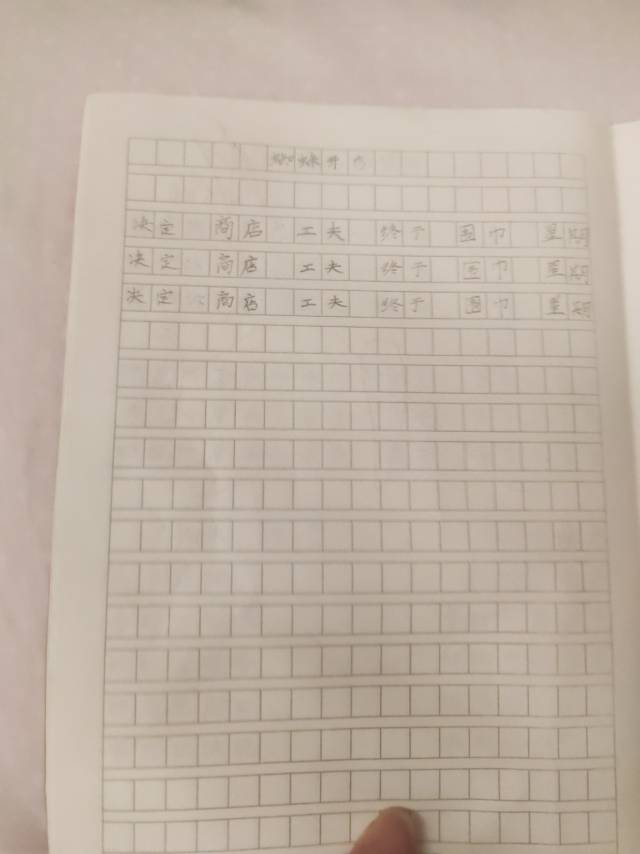 蜘蛛开店
决定 商店 工夫 终于 围巾 星期
决定 商店 工夫 终于 围巾 星期
决定 商店 工夫 终于 围巾 星期